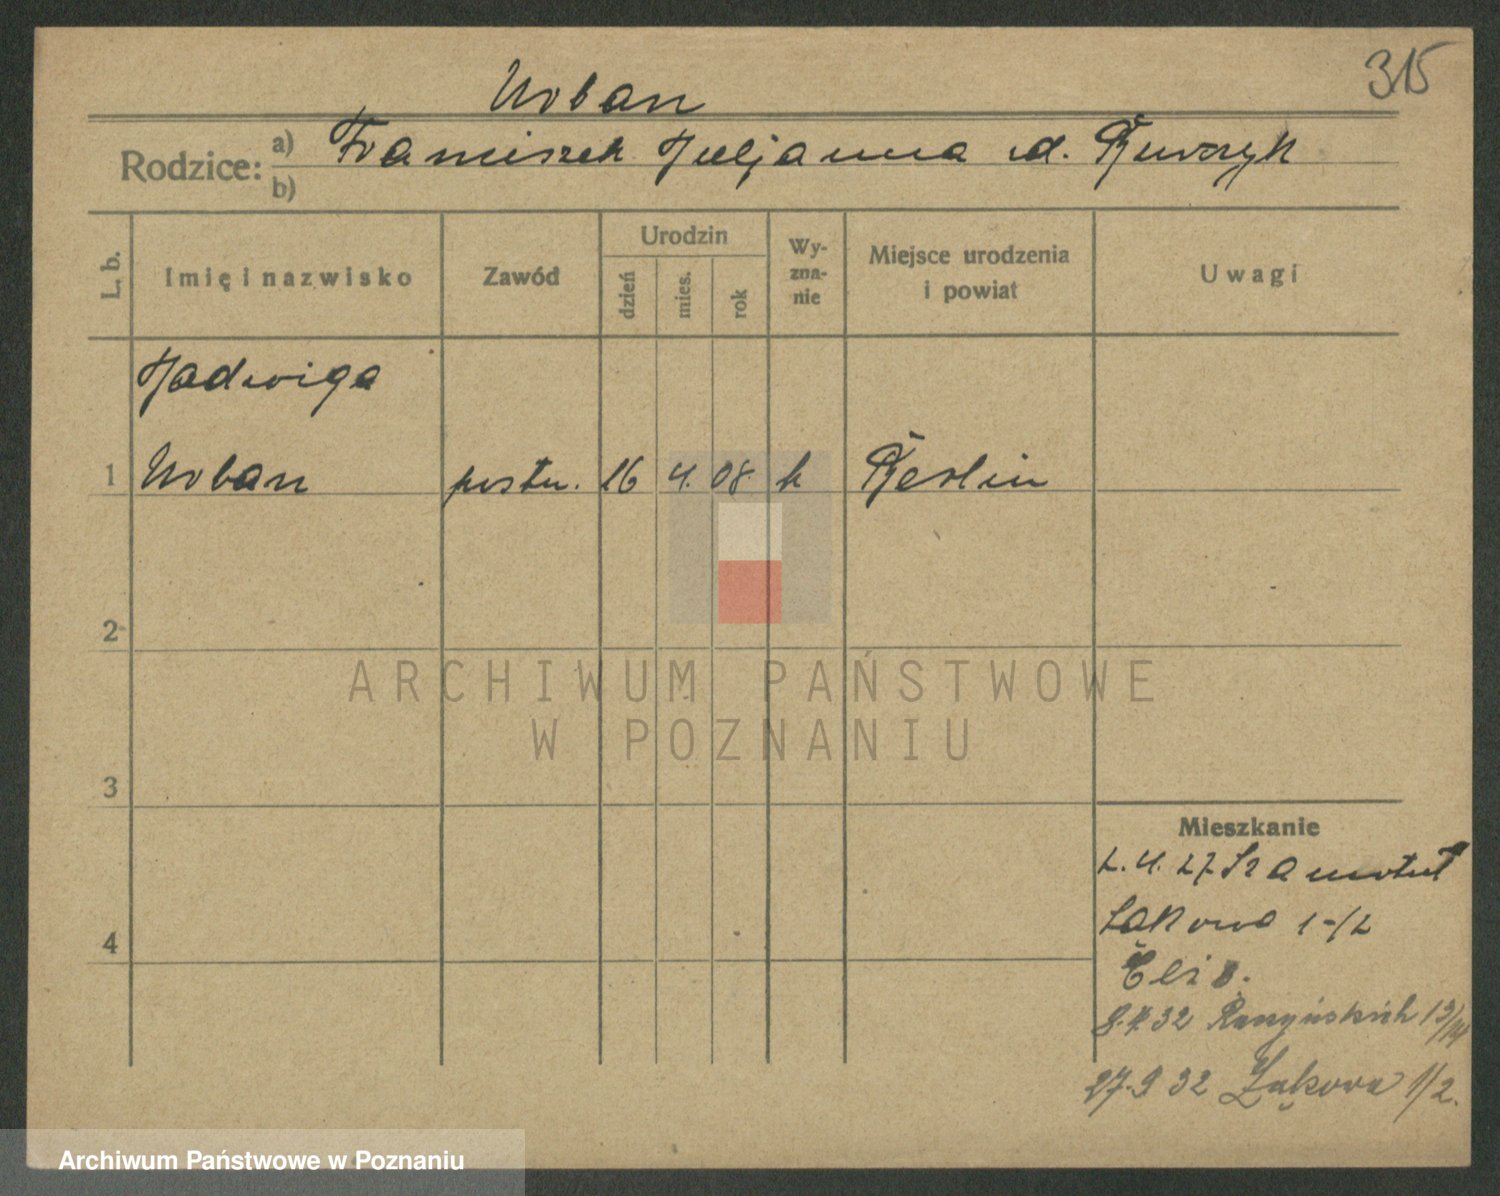 315
Urban
Rodzice: a) Franciszek Juljanna d.
b)
L. b.
Imię i nazwisko
Zawód
Urodzin
dzień
mies.
rok
Wy-
zna-
nie
Miejsce urodzenia
i powiat
Uwagi
Jadwiga
1 Urban 16 4. 08. k Berlin
2
3
4
Mieszkanie
2. 4. 27 Szamotuł
Łąkowa 1-/2
32
27.9 32 Łąkowa 1/2.
ARCHIWUM PAŃSTWOWE
W POZNANIU
Archiwum Państwowe w Poznaniu